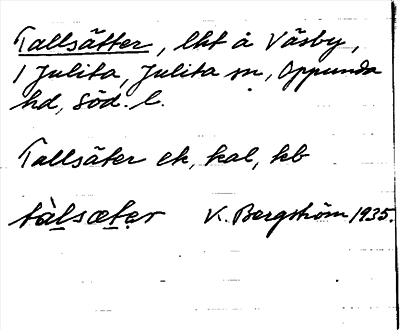 Tallsätter, lht å Väsby,
1 Julita, Julita sn, Oppunda
hd, Söd. l.
Tallsäter ek, kal, kb
tàlsætẹr K. Bergström 1935.